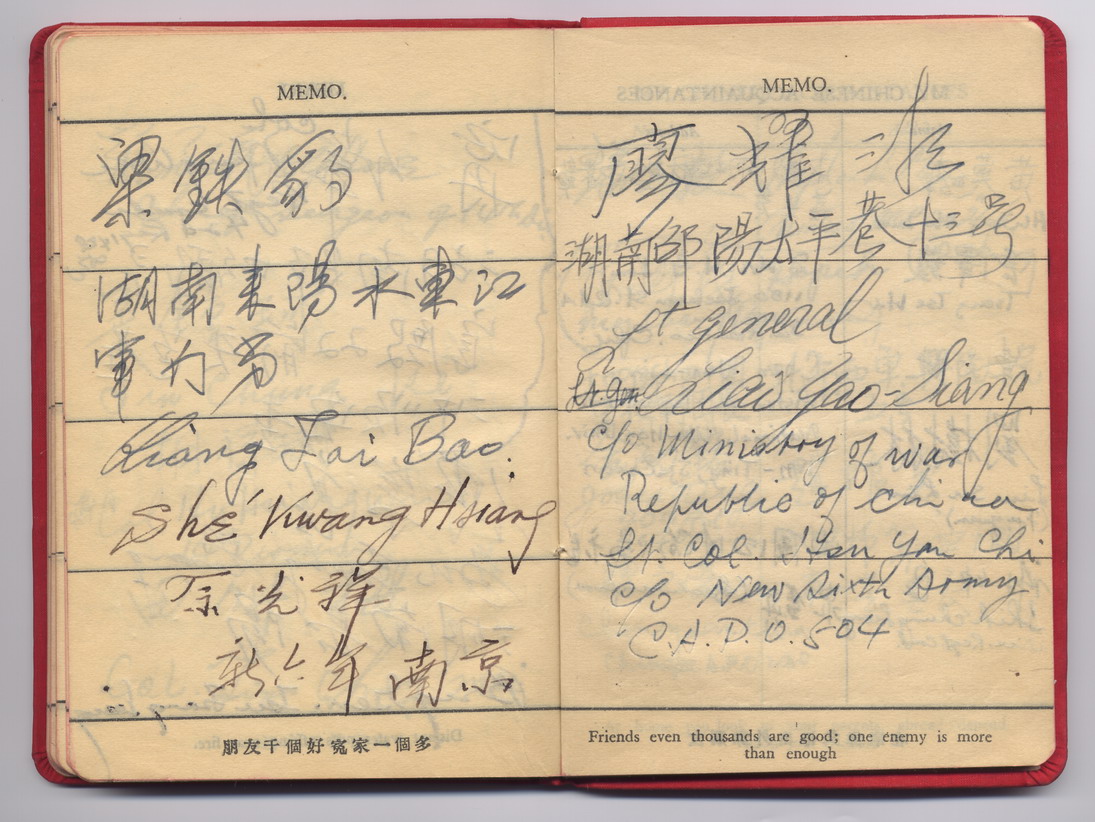 MEMO.
梁鉄豹
湖南耒陽水東江
Liang Tai Bao.
Shé Kwang Hsiang
佘光祥
新六軍 南京
朋友千個好寃家一個多
MEMO.
廖耀湘
湖南邵陽太平巷十三号
Lt general
Lt. Gen Liao Yao-Siang
C/o Ministry of war
Republic of China
Lt. Col. Hsu Yan Chi
C/o New Sixth Army
C.A.D.O. 504
Friends even thousands are good; one enemy is more
than enough